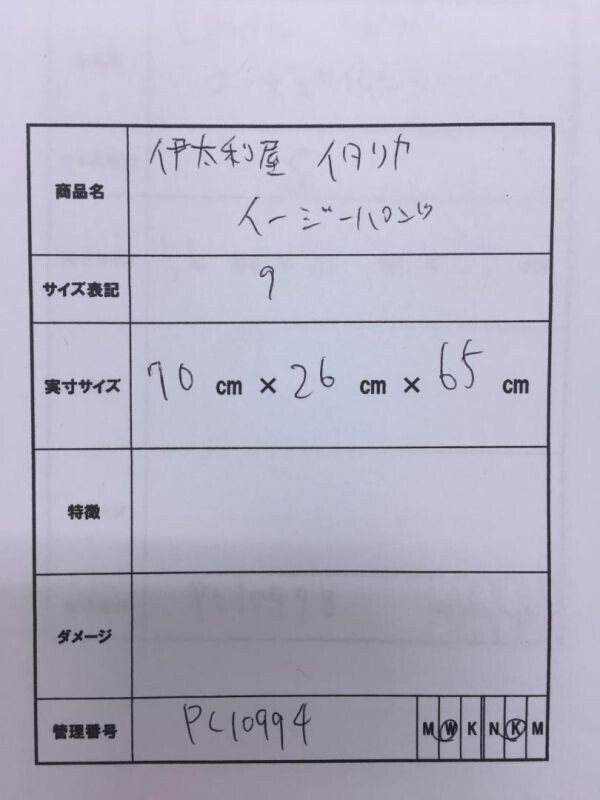 商品名 伊太利屋 イタリヤ
イージーパンツ
サイズ表記 9
実寸サイズ 70 cm × 26 cm × 65 cm
特徴
ダメージ
管理番号 PC10994 M W K N K M